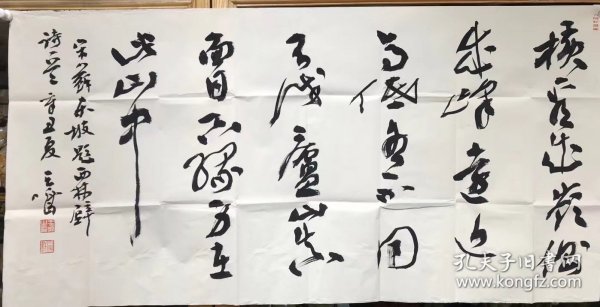 横看成岭侧
成峰远近
高低无一同
不识庐山真
面目只缘身在
此山中
宋苏东坡题西林壁
诗一首 辛丑夏
孔夫子旧书网